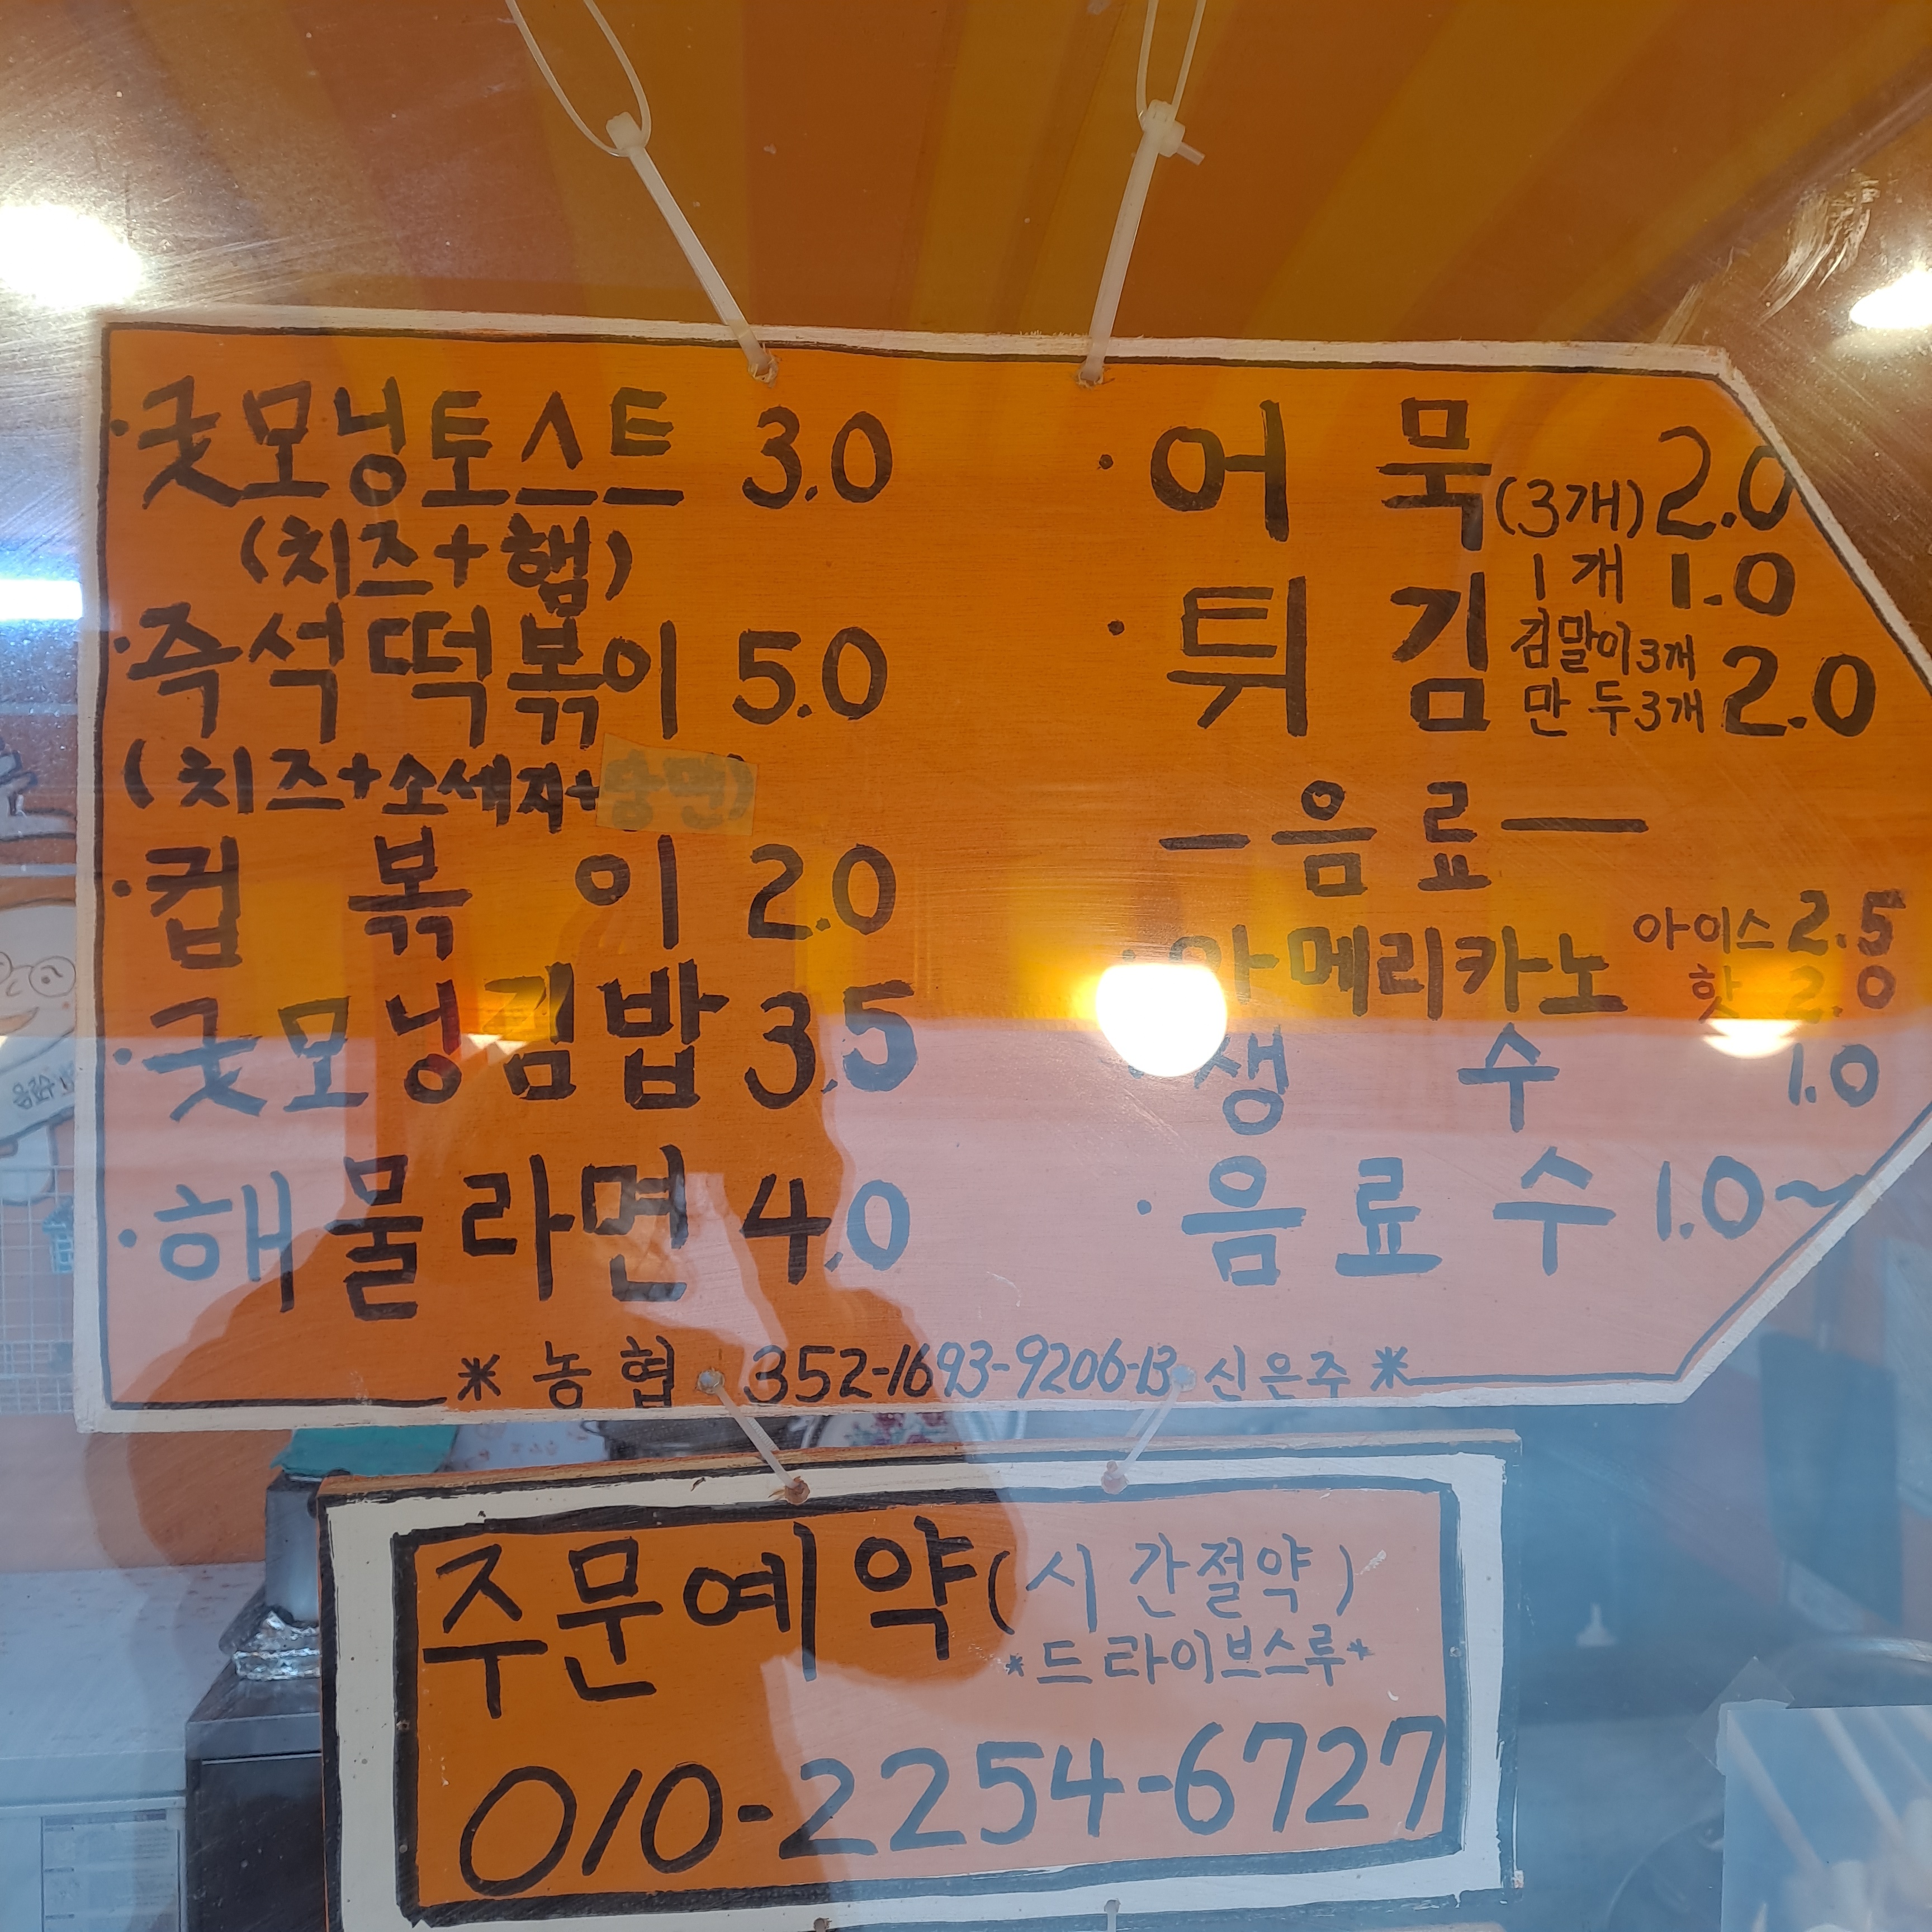 ·굿모닝토스트 3.0
(치즈+햄)
·즉석떡볶이 5.0
(치즈+소세지+당면)
·컵 볶 이 2.0
·굿모닝김밥 3.5
·해물라면 4.0
·어 묵(3개) 2.0
1개 1.0
·튀 김 김말이3개
만두3개 2.0
-음료-
·아메리카노 아이스 2.5
핫 2.0
·생 수 1.0
·음 료 수 1.0~
*농협 352-1693-9206-13 신은주*
주문예약(시간절약)
*드라이브스루*
010-2254-6727